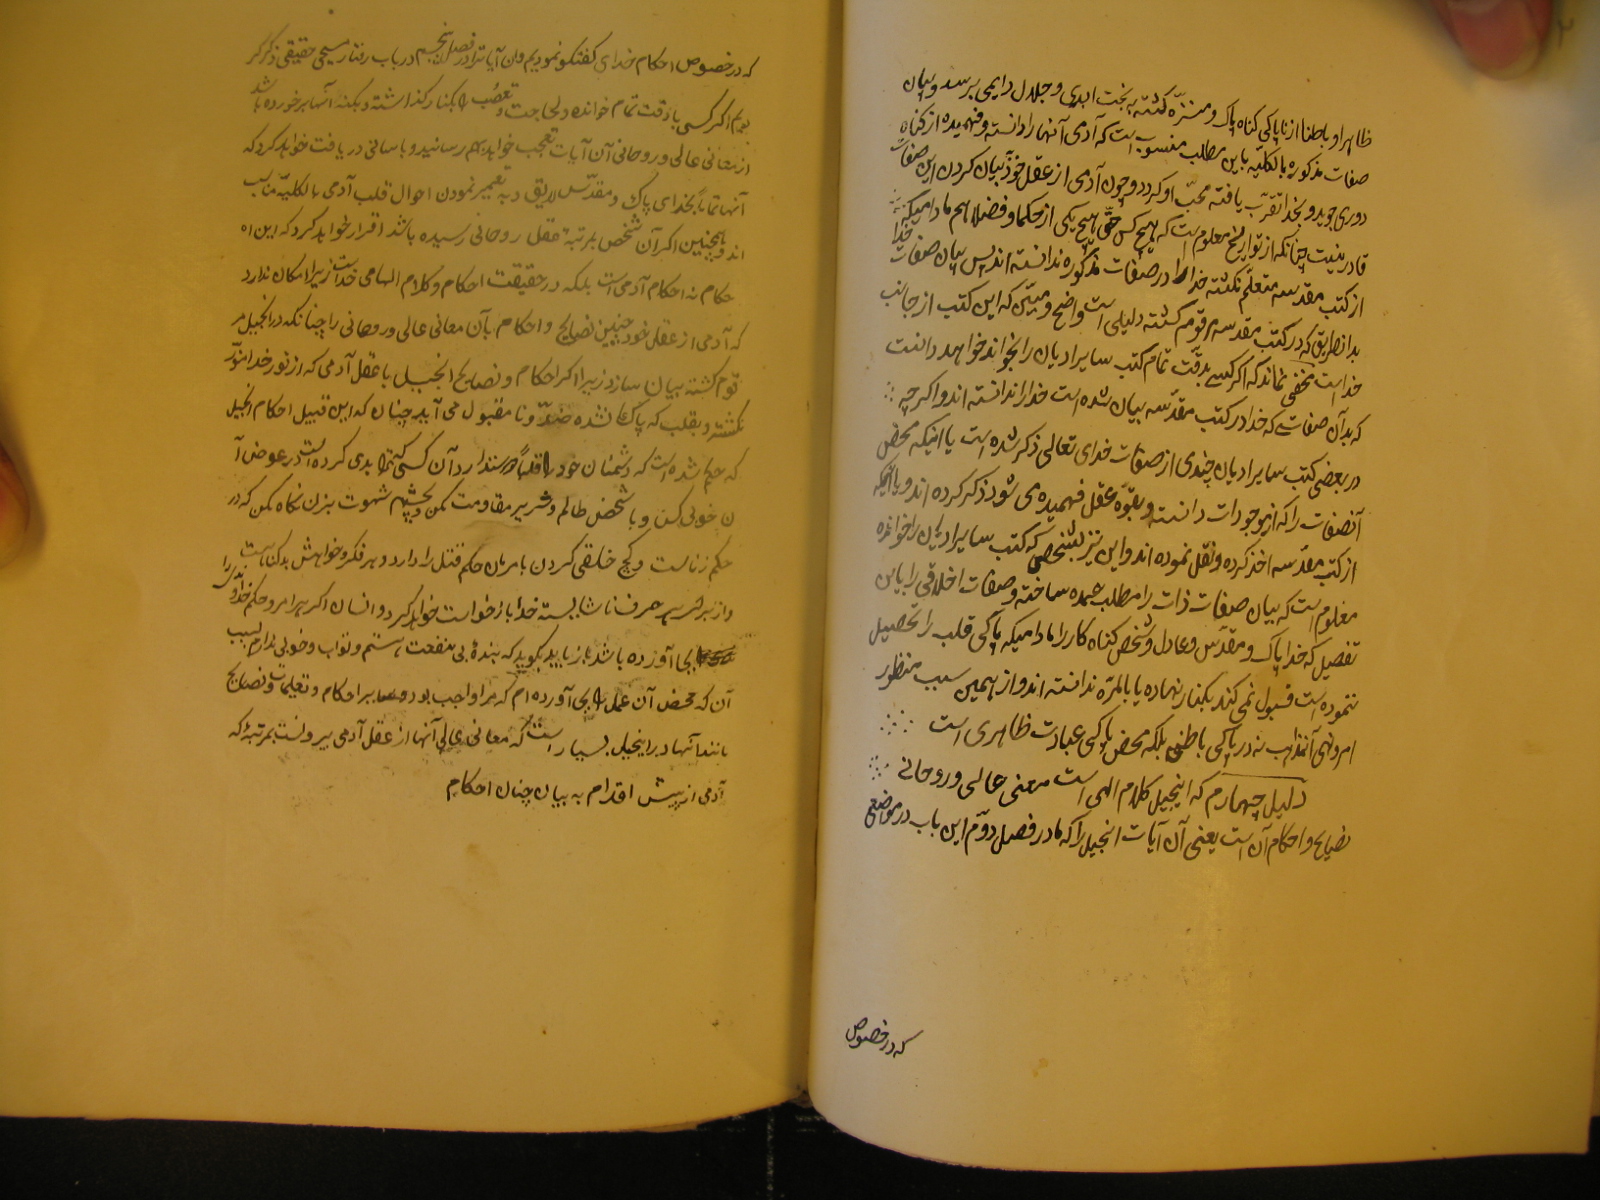 ظاهرا و باطنا از ناپاکی کناه پاک و منزّه کشته به نجت ابدی و جلال دایمی برسد و بیان
صفات مذکوره بالکلیّه باین مطلب منسوبست که آدمی آنها را دانسته و فهمیده از کناه
دوری جوید و بخدا تقرّب یافته محبّ او کردد و چون آدمی از عقل خود به بیان کردن این صفات
قادر نیست چنانکه از تواریخ معلوم است که هیچ کس حتّی هیچ یکی از حکما و فضلا هم مادامیکه
از کتب مقدسه متعلّم نکشته خدا را در صفات مذکوره ندانسته اند پس بیان صفات خدا
بدانطریق که در کتب مقدسه مرقوم کشته دلیلی است واضح و مبیّن که این کتب از جانب
خداست مخفی نماند که اکر کسی بدقّت تمام کتب سایر ادیان را بخواند خواهد دانست
که بدآن صفات که خدا در کتب مقدّسه بیان شده است خدا را ندانسته اند و اکر چه
در بعضی کتب سایر ادیان چندی از صفات خدای تعالی ذکر شده است یا اینکه محض
آنصفات را که از موجودات دانسته و بقوّه عقل فهمیده می شود ذکر کرده اند و یا آنکه
از کتب مقدّسه اخذ کرده و نقل نموده اند و این نیز بشخصی که کتب سایر ادیان را خوانده
معلوم است که بیان صفات ذات را مطلب عمده ساخته و صفات اخلاقی را باین
تفصیل که خدا پاک و مقدّس و عادل و شخص کناه کار را مادامیکه پاکی قلب را تحصیل
ننموده است قبول نمی کند بکنار نهاده یا بالمرّه ندانسته اند و از همین سبب منظور
امر و نهی آنمذاهب نه در پاکی باطنی بلکه محض پاکی عبادت ظاهری است
دلیل چهارم که انجیل کلام الهی است معنی عالی و روحانی
نصایح و احکام آن است یعنی آن آیات انجیل را که ما در فصل دوّم این باب در موضعی
که در خصوص
که در خصوص احکام خدای کفتکو نمودیم و آن آیات را در فصل پنجم در باب رفتار مسیحی حقیقی ذکر کر
بودیم اکر کسی با دقت تمام خوانده و لجاجت و تعصّب را بکنار کذاشته و بکنه آنها برخورده باشد
از معانی عالی و روحانی آن آیات تعجب خواهد بهم رسانید و باسانی دریافت خواهد کرد که
آنها تماماً بخدای پاک و مقدّس لایق و به تعمیر نمودن احوال قلب آدمی بالکلیّه مناسب
اند و همچنین اکر آن شخص بمرتبهٔ عقل روحانی رسیده باشد اقرار خواهد کرد که این اه
حکام نه احکام آدمی است بلکه در حقیقت احکام و کلام الهامی خداست زیرا امکان ندارد
که آدمی از عقل خود چنین نصایح و احکام بآن معانی عالی و روحانی را چنانکه در انجیل مر
قوم کشته بیان سازد زیرا اکر احکام و نصایح انجیل با عقل آدمی که از نور خدا منوّر
نکشته و بقلب که پاک نشده ضدّ و نا مقبول می آید چنان که این قبیل احکام انجیل
که حکم شده است که دشمنان خود را قلباً دوستدار و آن کسی که بتو بدی کرده است در عوض آ
ن خوبی کن و با شخص ظالم و شریر مقاومت مکن و بچشم شهوت بزن نکاه مکن که در
حکم زناست و کج خلقی کردن با مردمان حکم قتل را دارد و هر فکر و خواهش بد کناهست
و از برای هر حرف ناشایسته خدا بازخواست خواهد کرد و انسان اکر هر امر و حکم خداوند را
بجا آورده باشد باز باید بکوید که بندهٔ بی منفعت هستم و ثواب و خوبی ندارم بسبب
آن که محض آن عمل را بجا آورده ام که مرا واجب بود و سایر احکام و تعلیمات و نصایح
مانند آنها در انجیل بسیار است که معانی عالی آنها از عقل آدمی بیرونست بمرتبهٔ که
آدمی از پیش اقدام به بیان چنان احکام